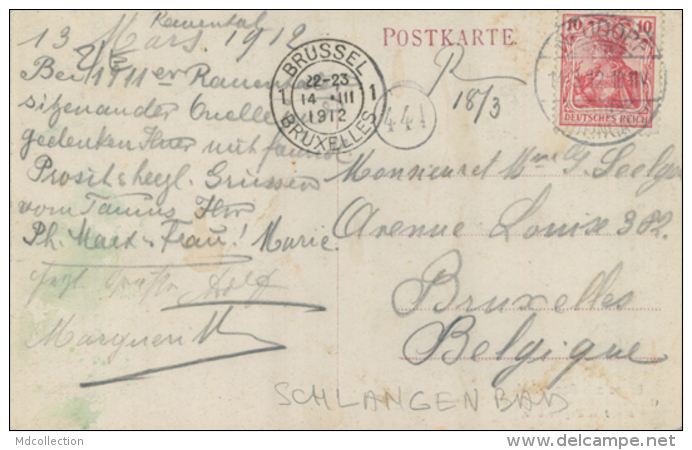 Rauenthal
13 Mars. 1912
Bei 1911er Rauenthaler
sitzenander Quelle
gedenken Ihrer mit
Prosit & heyl. Grüssen
vom Taunus Ihr
Ph. Marx & Frau! Marie
POSTKARTE
BRÜSSEL
1 22-23 1
14 III
1912
BRUXELLES
441
R 18/3
10 10
DEUTSCHES REICH
Monsieur et Mme G. Seelig
Avenue Louise 382.
Bruxelles
Belgique
SCHLANGENBAD
Mdcollection
delcampe.net